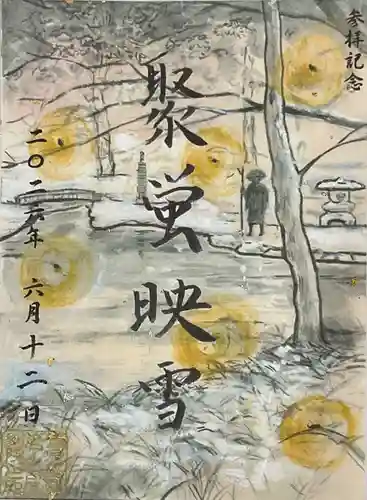 参拝記念
聚蛍映雪
二〇二六年 六月十二日